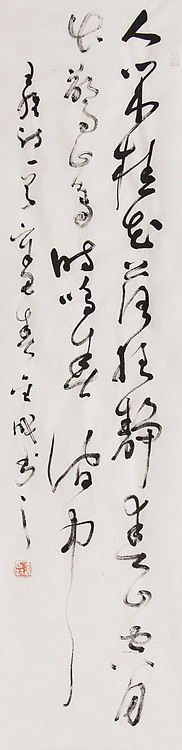 人閒桂花落夜靜春山空月
出驚山鳥時鳴春澗中
王維詩一首春金成書之